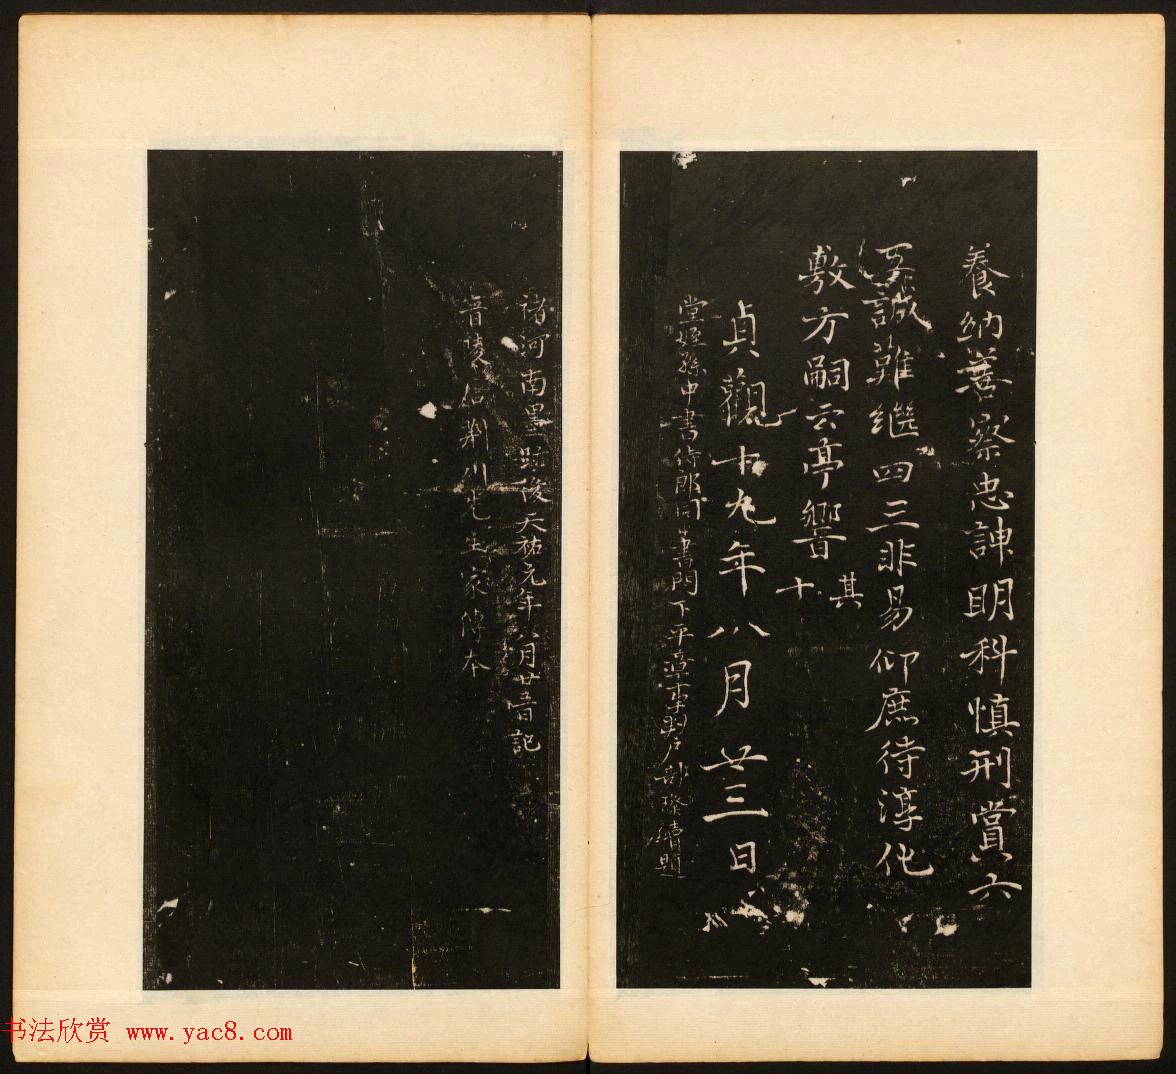 養納善察忠諫明科慎刑賞六
五誠難繼四三非易仰庶待淳化
敷方嗣云亭響 其十
貞觀十九年八月廿三日
堂姪孫中書侍郎同書門下平章事判戶部璨續題
褚河南墨跡後天祐元年八月廿音記
晉陵荆川先生家傳本
书法欣赏 www.yac8.com